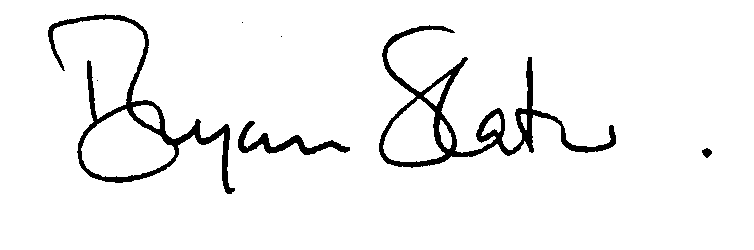 Bryan Slater.